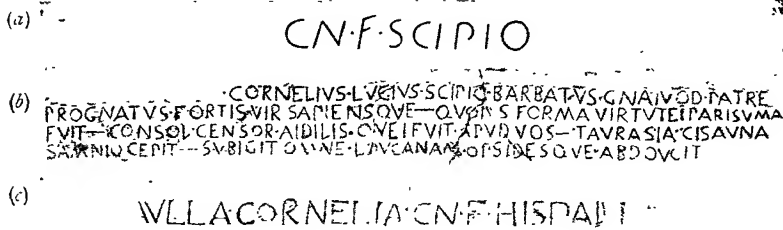 (a) CN·F·SCIPIO
(b) ·CORNELIVS·LVCIVS·SCIPIO·BARBATVS·GNAIVOD·PATRE
PROGNATVS·FORTIS·VIR SAPIENSQVE—QVOIVS FORMA VIRTVTEI PARISVMA
FVIT—CONSOL CENSOR·AIDILIS·QVEI FVIT·APVD VOS—TAVRASIA CISAVNA
SAMNIO CEPIT—SVBIGIT OMNE·LOVCANAM·OPSIDESQVE·ABDOVCIT
(c) CORNELIA·CN·F·HISPALLI